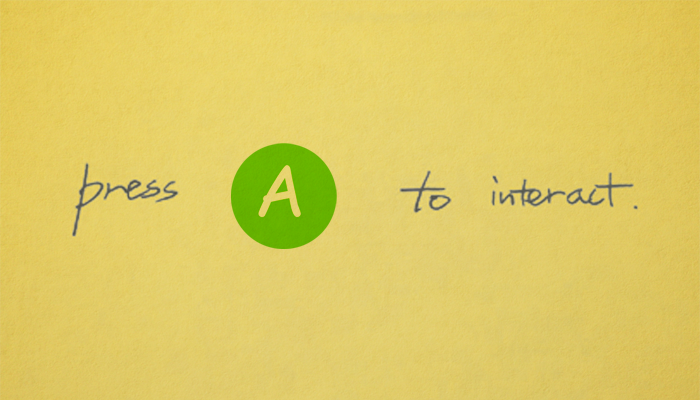 press A to interact.